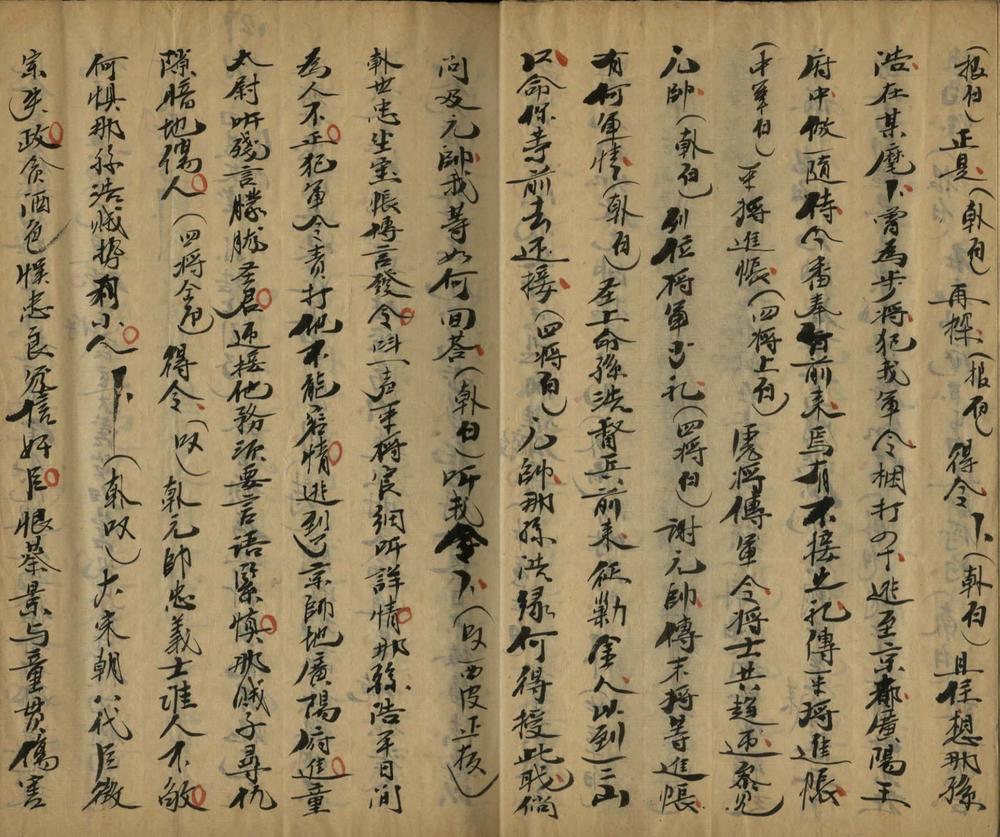 (报白)正是、(軑白)再探、(报白)得令下、(軑白)且住想那孫
浩在某麾下、曾為步將犯我軍令梱打四十逃至京都廣陽王
府中做隨侍今番奉旨前来焉有不接之礼傳眾將進帳
(中軍白)眾將進帳、(四將上白)虎將傳軍令將士共趨
元帥、(軑白)列位將軍少礼(四將白)謝元帥傳末將等進帳
有何軍情、(軑白)圣上命孫浩督兵前来征勦金人以到三山
口命你等前去迎接、(四將白)元帥那孫洪緣何得授此職倘
問及元帥我等如何回荅、(軑白)听我令下、(叹西皮正板)
軑世忠坐宝帳傳言發令呌一声眾將官細听詳情那孫浩平日間
為人不正犯軍令責打他不能容情逃到了京師地廣陽府進童
太尉听殘言朦朧圣君迎接他務須要言語緊慎那賊子尋仇
隙暗地傷人(四將仝白)得令、(叹)軑元帥忠義士誰人不敬
何惧那孫浩賊势利小人下(軑叹)大宋朝八代臣徽
宗失政貪酒色悞忠良寵信奸臣恨蔡景与童貫傷害